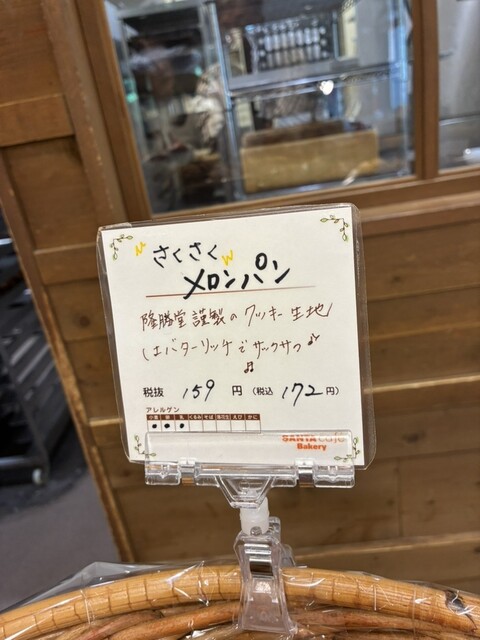 さくさく
メロンパン
隆勝堂謹製のクッキー生地
はバターリッチでサックサク
税抜 159 円 (税込 172 円)
アレルゲン
小麦 卵 乳 くるみ そば 落花生 えび かに
SANTA cafe
Bakery